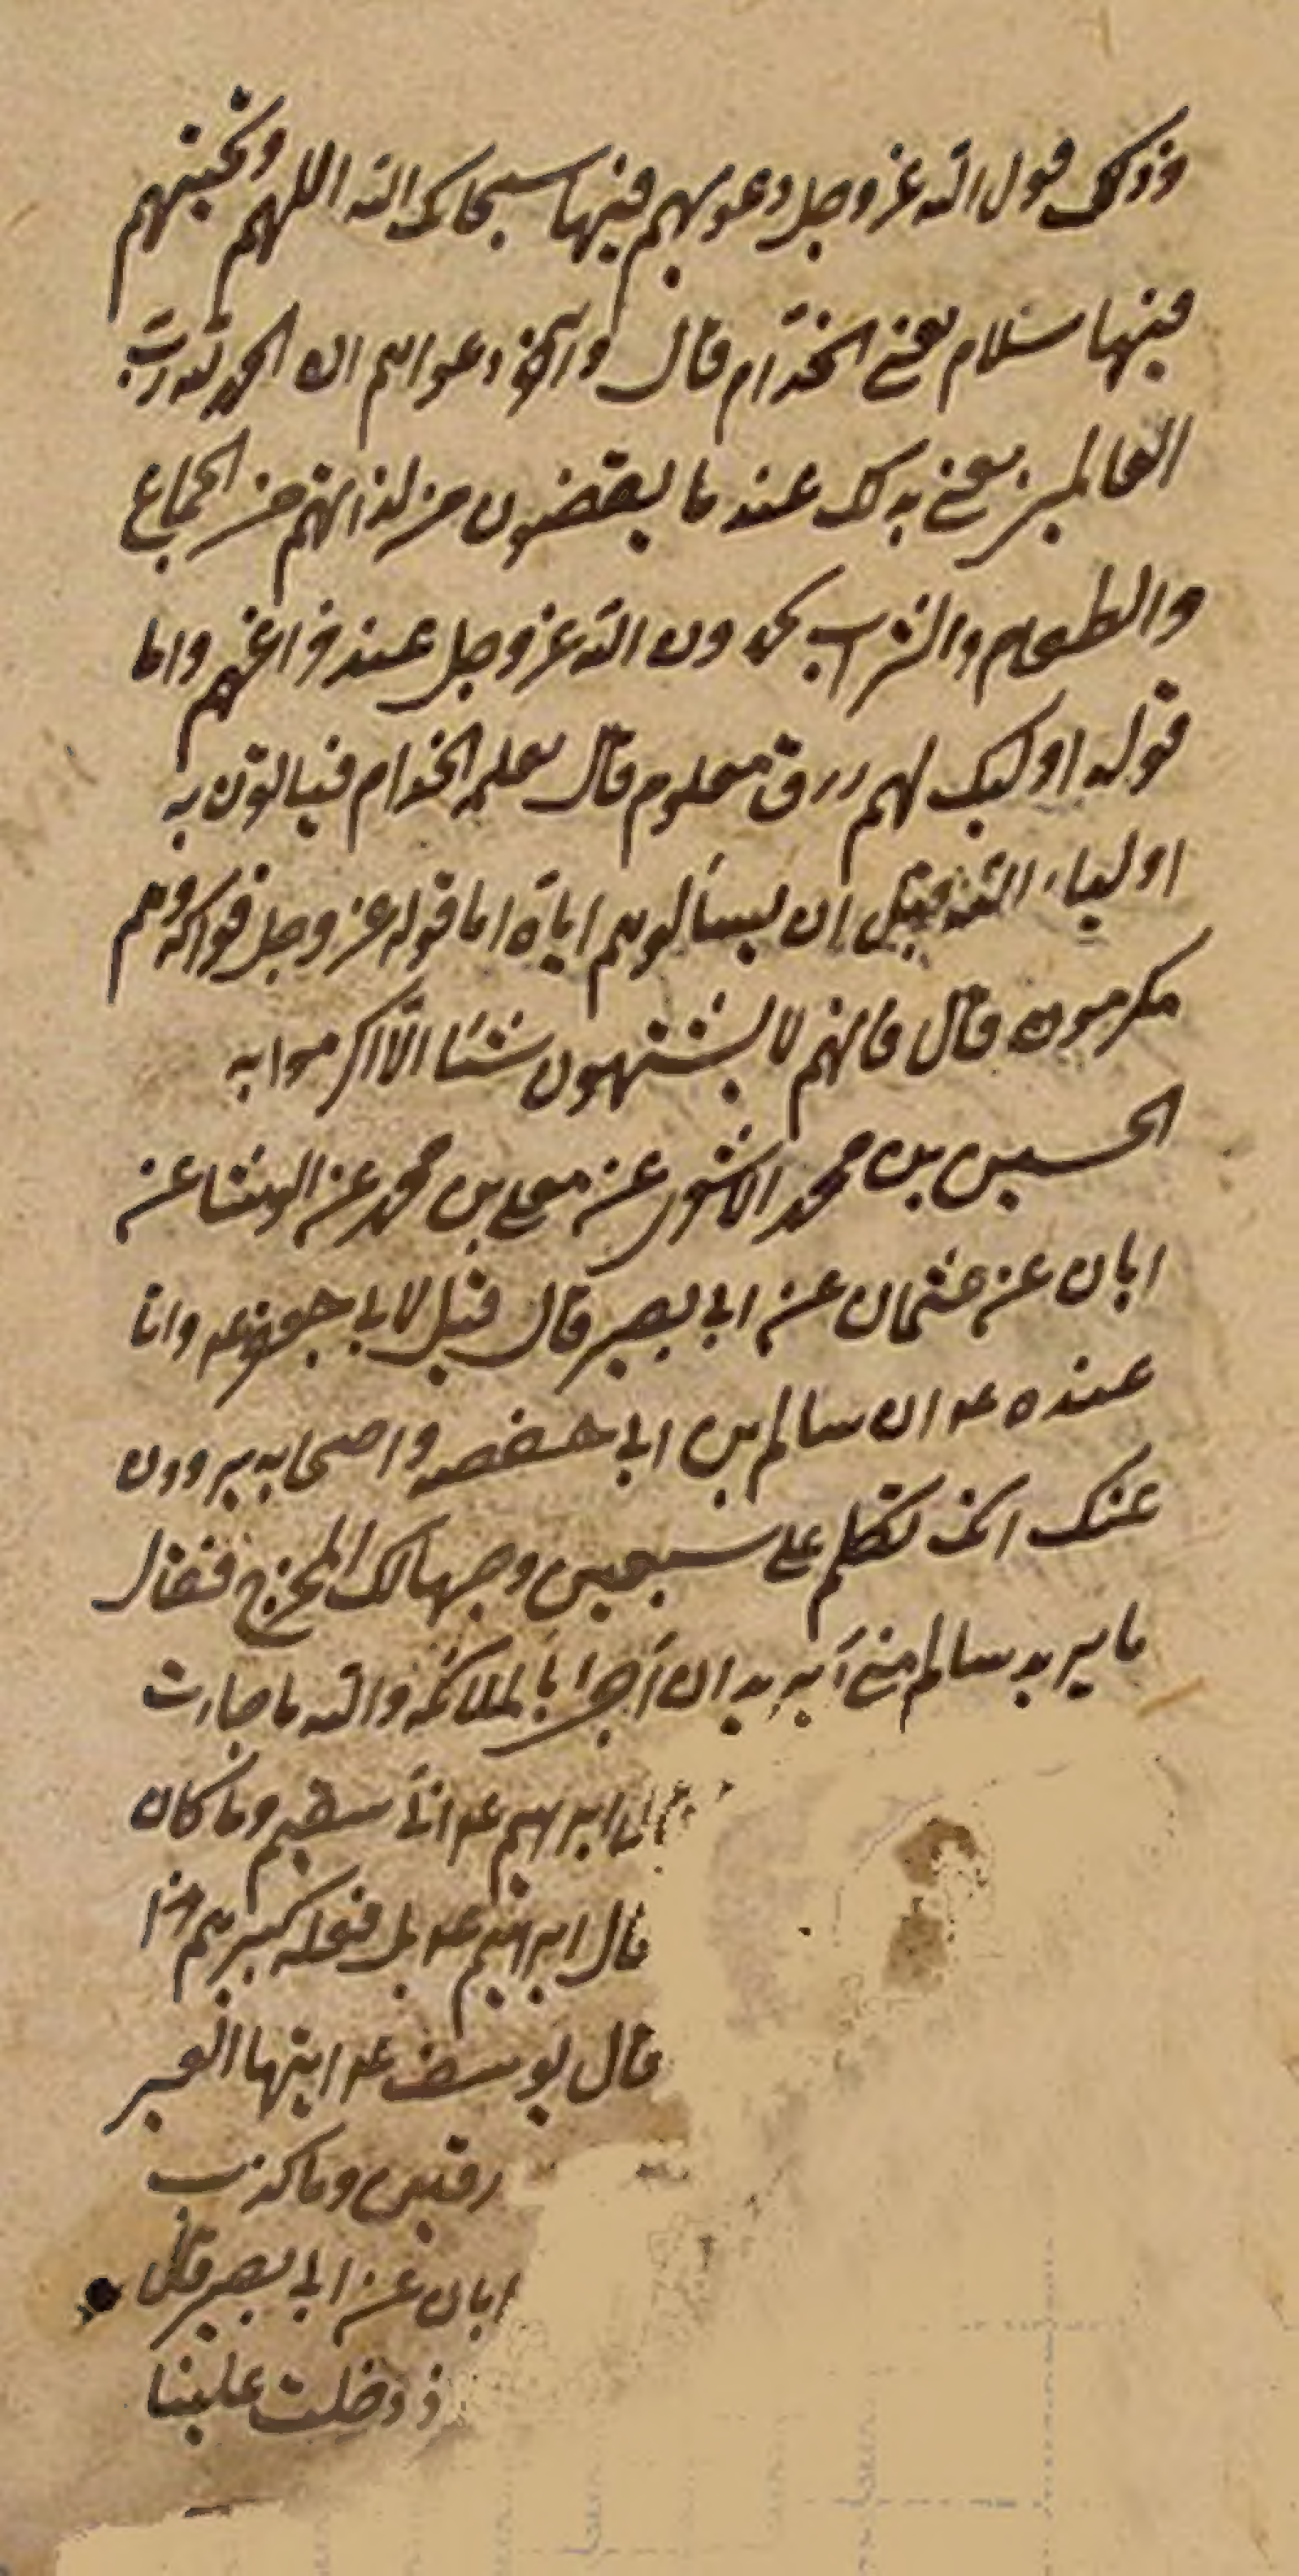 وذلك قول الله عز وجل دعويهم فيها سبحانك الله اللهم وتحيتهم
فيها سلام يعني الخدام قال وآخر دعواهم ان الحمد لله رب
العالمين يعني بذلك عند ما يقضون من لذاتهم من الجماع
والطعام والشراب يحمدون الله عز وجل عند فراغهم واما
قوله اولئك لهم رزق معلوم قال يعلمه الخدام فياتون به
اولياء الله قبل ان يسألوهم اياه اما قوله عز وجل فواكه وهم
مكرمون قال فانهم لا يشتهون شيئا الا اكرموا به
الحسين بن محمد الاشعري عن معلى بن محمد عن الوشا عن
ابان عن عثمان عن ابي بصير قال قيل لابي جعفر عه وانا
عنده عه ان سالم بن ابي حفصه واصحابه يروون
عنك انك تكلم على سبعين وجها لك المخرج فقال
ما يريد سالم مني أيريد ان أجيء بالملائكه والله ما جاءت
ابرهيم عه اني سقيم وما كان
قال ابرهيم عه بل فعله كبيرهم هذا
قال يوسف عه ايتها العير
رقين وما كذب
ابان عن ابي بصير قال
ذ دخلت علينا